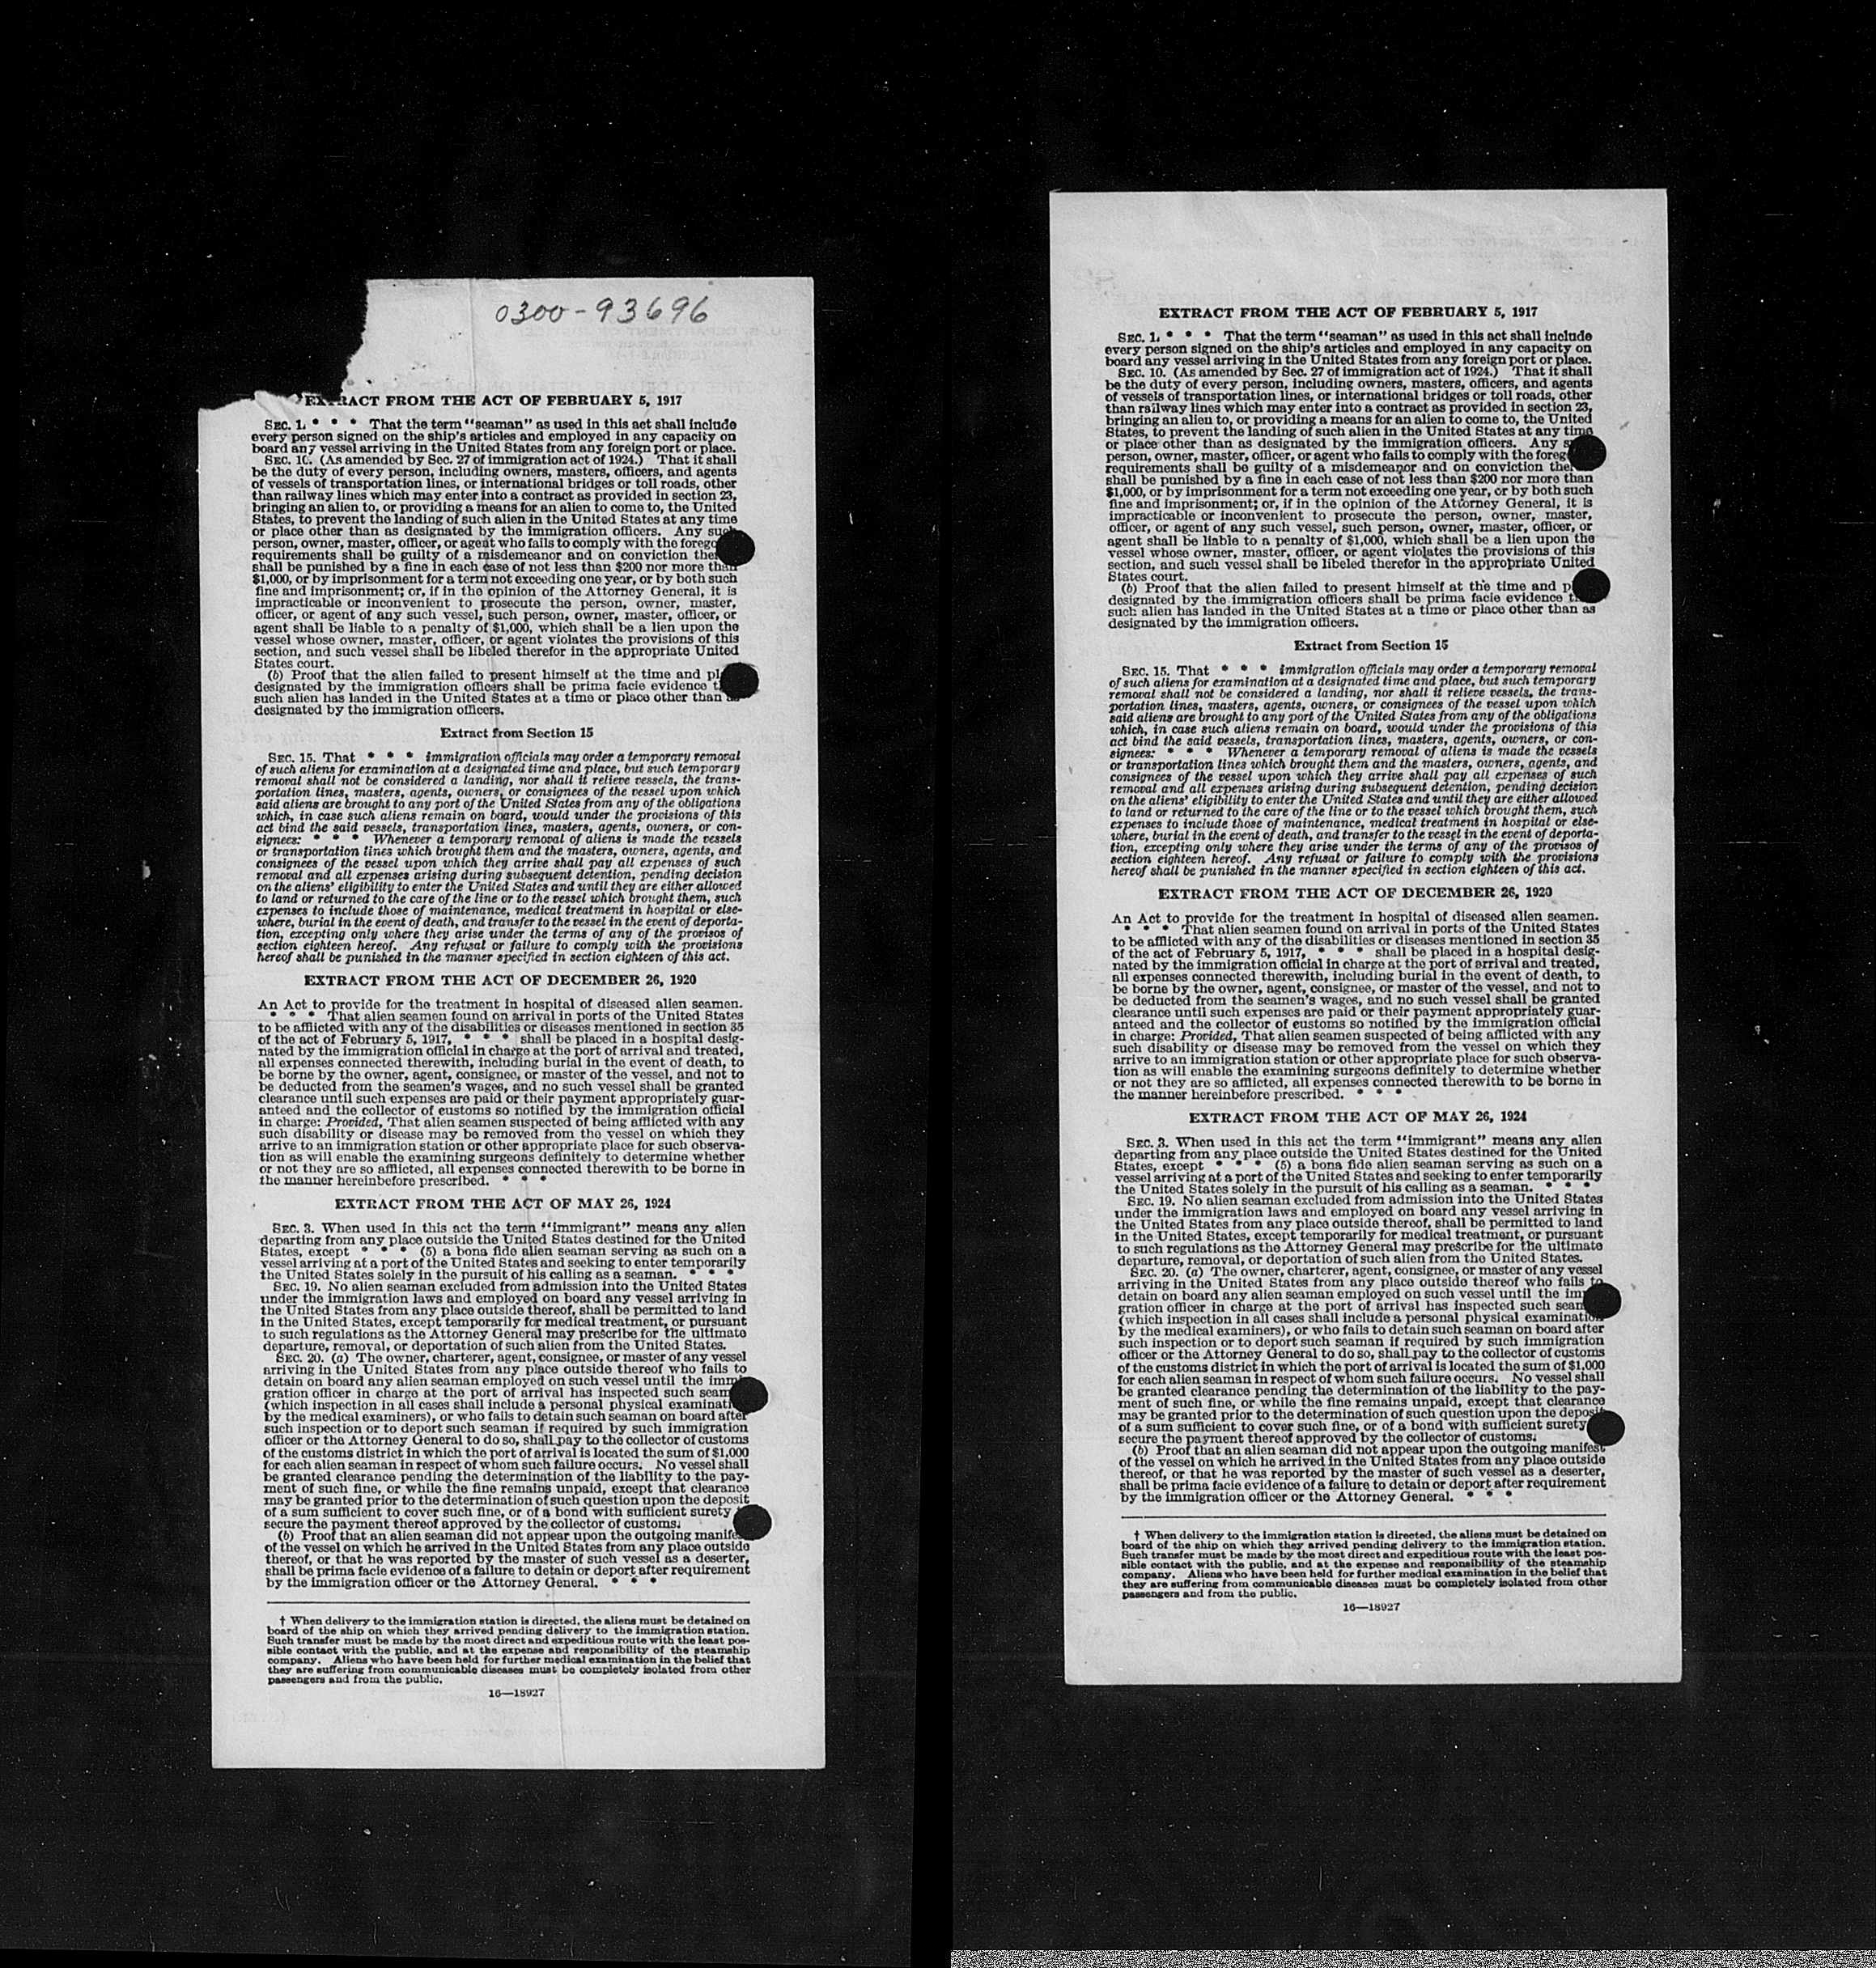 0300-93696
EXTRACT FROM THE ACT OF FEBRUARY 5, 1917
SEC. 1. * * * That the term "seaman" as used in this act shall include
every person signed on the ship's articles and employed in any capacity on
board any vessel arriving in the United States from any foreign port or place.
SEC. 10. (As amended by Sec. 27 of immigration act of 1924.) That it shall
be the duty of every person, including owners, masters, officers, and agents
of vessels of transportation lines, or international bridges or toll roads, other
than railway lines which may enter into a contract as provided in section 23,
bringing an alien to, or providing a means for an alien to come to, the United
States, to prevent the landing of such alien in the United States at any time
or place other than as designated by the immigration officers. Any such
person, owner, master, officer, or agent who fails to comply with the forego
requirements shall be guilty of a misdemeanor and on conviction the
shall be punished by a fine in each case of not less than $200 nor more than
$1,000, or by imprisonment for a term not exceeding one year, or by both such
fine and imprisonment; or, if in the opinion of the Attorney General, it is
impracticable or inconvenient to prosecute the person, owner, master,
officer, or agent of any such vessel, such person, owner, master, officer, or
agent shall be liable to a penalty of $1,000, which shall be a lien upon the
vessel whose owner, master, officer, or agent violates the provisions of this
section, and such vessel shall be libeled therefor in the appropriate United
States court.
(b) Proof that the alien failed to present himself at the time and pl
designated by the immigration officers shall be prima facie evidence t
such alien has landed in the United States at a time or place other than as
designated by the immigration officers.
Extract from Section 15
SEC. 15. That * * * immigration officials may order a temporary removal
of such aliens for examination at a designated time and place, but such temporary
removal shall not be considered a landing, nor shall it relieve vessels, the trans-
portation lines, masters, agents, owners, or consignees of the vessel upon which
said aliens are brought to any port of the United States from any of the obligations
which, in case such aliens remain on board, would under the provisions of this
act bind the said vessels, transportation lines, masters, agents, owners, or con-
signees: * * * Whenever a temporary removal of aliens is made the vessels
or transportation lines which brought them and the masters, owners, agents, and
consignees of the vessel upon which they arrive shall pay all expenses of such
removal and all expenses arising during subsequent detention, pending decision
on the aliens' eligibility to enter the United States and until they are either allowed
to land or returned to the care of the line or to the vessel which brought them, such
expenses to include those of maintenance, medical treatment in hospital or else-
where, burial in the event of death, and transfer to the vessel in the event of deporta-
tion, excepting only where they arise under the terms of any of the provisos of
section eighteen hereof. Any refusal or failure to comply with the provisions
hereof shall be punished in the manner specified in section eighteen of this act.
EXTRACT FROM THE ACT OF DECEMBER 26, 1920
An Act to provide for the treatment in hospital of diseased alien seamen.
* * * That alien seamen found on arrival in ports of the United States
to be afflicted with any of the disabilities or diseases mentioned in section 35
of the act of February 5, 1917, * * * shall be placed in a hospital desig-
nated by the immigration official in charge at the port of arrival and treated,
all expenses connected therewith, including burial in the event of death, to
be borne by the owner, agent, consignee, or master of the vessel, and not to
be deducted from the seamen's wages, and no such vessel shall be granted
clearance until such expenses are paid or their payment appropriately guar-
anteed and the collector of customs so notified by the immigration official
in charge: Provided, That alien seamen suspected of being afflicted with any
such disability or disease may be removed from the vessel on which they
arrive to an immigration station or other appropriate place for such observa-
tion as will enable the examining surgeons definitely to determine whether
or not they are so afflicted, all expenses connected therewith to be borne in
the manner hereinbefore prescribed. * * *
EXTRACT FROM THE ACT OF MAY 26, 1924
SEC. 3. When used in this act the term "immigrant" means any alien
departing from any place outside the United States destined for the United
States, except * * * (5) a bona fide alien seaman serving as such on a
vessel arriving at a port of the United States and seeking to enter temporarily
the United States solely in the pursuit of his calling as a seaman. * * *
SEC. 19. No alien seaman excluded from admission into the United States
under the immigration laws and employed on board any vessel arriving in
the United States from any place outside thereof, shall be permitted to land
in the United States, except temporarily for medical treatment, or pursuant
to such regulations as the Attorney General may prescribe for the ultimate
departure, removal, or deportation of such alien from the United States.
SEC. 20. (a) The owner, charterer, agent, consignee, or master of any vessel
arriving in the United States from any place outside thereof who fails to
detain on board any alien seaman employed on such vessel until the immi
gration officer in charge at the port of arrival has inspected such seam
(which inspection in all cases shall include a personal physical examinati
by the medical examiners), or who fails to detain such seaman on board after
such inspection or to deport such seaman if required by such immigration
officer or the Attorney General to do so, shall pay to the collector of customs
of the customs district in which the port of arrival is located the sum of $1,000
for each alien seaman in respect of whom such failure occurs. No vessel shall
be granted clearance pending the determination of the liability to the pay-
ment of such fine, or while the fine remains unpaid, except that clearance
may be granted prior to the determination of such question upon the deposit
of a sum sufficient to cover such fine, or of a bond with sufficient surety
secure the payment thereof approved by the collector of customs.
(b) Proof that an alien seaman did not appear upon the outgoing manife
of the vessel on which he arrived in the United States from any place outside
thereof, or that he was reported by the master of such vessel as a deserter,
shall be prima facie evidence of a failure to detain or deport after requirement
by the immigration officer or the Attorney General. * * *
† When delivery to the immigration station is directed, the aliens must be detained on
board of the ship on which they arrived pending delivery to the immigration station.
Such transfer must be made by the most direct and expeditious route with the least pos-
sible contact with the public, and at the expense and responsibility of the steamship
company. Aliens who have been held for further medical examination in the belief that
they are suffering from communicable diseases must be completely isolated from other
passengers and from the public.
16—18927
EXTRACT FROM THE ACT OF FEBRUARY 5, 1917
SEC. 1. * * * That the term "seaman" as used in this act shall include
every person signed on the ship's articles and employed in any capacity on
board any vessel arriving in the United States from any foreign port or place.
SEC. 10. (As amended by Sec. 27 of immigration act of 1924.) That it shall
be the duty of every person, including owners, masters, officers, and agents
of vessels of transportation lines, or international bridges or toll roads, other
than railway lines which may enter into a contract as provided in section 23,
bringing an alien to, or providing a means for an alien to come to, the United
States, to prevent the landing of such alien in the United States at any time
or place other than as designated by the immigration officers. Any s
person, owner, master, officer, or agent who fails to comply with the foreg
requirements shall be guilty of a misdemeanor and on conviction the
shall be punished by a fine in each case of not less than $200 nor more than
$1,000, or by imprisonment for a term not exceeding one year, or by both such
fine and imprisonment; or, if in the opinion of the Attorney General, it is
impracticable or inconvenient to prosecute the person, owner, master,
officer, or agent of any such vessel, such person, owner, master, officer, or
agent shall be liable to a penalty of $1,000, which shall be a lien upon the
vessel whose owner, master, officer, or agent violates the provisions of this
section, and such vessel shall be libeled therefor in the appropriate United
States court.
(b) Proof that the alien failed to present himself at the time and p
designated by the immigration officers shall be prima facie evidence t
such alien has landed in the United States at a time or place other than as
designated by the immigration officers.
Extract from Section 15
SEC. 15. That * * * immigration officials may order a temporary removal
of such aliens for examination at a designated time and place, but such temporary
removal shall not be considered a landing, nor shall it relieve vessels, the trans-
portation lines, masters, agents, owners, or consignees of the vessel upon which
said aliens are brought to any port of the United States from any of the obligations
which, in case such aliens remain on board, would under the provisions of this
act bind the said vessels, transportation lines, masters, agents, owners, or con-
signees: * * * Whenever a temporary removal of aliens is made the vessels
or transportation lines which brought them and the masters, owners, agents, and
consignees of the vessel upon which they arrive shall pay all expenses of such
removal and all expenses arising during subsequent detention, pending decision
on the aliens' eligibility to enter the United States and until they are either allowed
to land or returned to the care of the line or to the vessel which brought them, such
expenses to include those of maintenance, medical treatment in hospital or else-
where, burial in the event of death, and transfer to the vessel in the event of deporta-
tion, excepting only where they arise under the terms of any of the provisos of
section eighteen hereof. Any refusal or failure to comply with the provisions
hereof shall be punished in the manner specified in section eighteen of this act.
EXTRACT FROM THE ACT OF DECEMBER 26, 1920
An Act to provide for the treatment in hospital of diseased alien seamen.
* * * That alien seamen found on arrival in ports of the United States
to be afflicted with any of the disabilities or diseases mentioned in section 35
of the act of February 5, 1917, * * * shall be placed in a hospital desig-
nated by the immigration official in charge at the port of arrival and treated,
all expenses connected therewith, including burial in the event of death, to
be borne by the owner, agent, consignee, or master of the vessel, and not to
be deducted from the seamen's wages, and no such vessel shall be granted
clearance until such expenses are paid or their payment appropriately guar-
anteed and the collector of customs so notified by the immigration official
in charge: Provided, That alien seamen suspected of being afflicted with any
such disability or disease may be removed from the vessel on which they
arrive to an immigration station or other appropriate place for such observa-
tion as will enable the examining surgeons definitely to determine whether
or not they are so afflicted, all expenses connected therewith to be borne in
the manner hereinbefore prescribed. * * *
EXTRACT FROM THE ACT OF MAY 26, 1924
SEC. 3. When used in this act the term "immigrant" means any alien
departing from any place outside the United States destined for the United
States, except * * * (5) a bona fide alien seaman serving as such on a
vessel arriving at a port of the United States and seeking to enter temporarily
the United States solely in the pursuit of his calling as a seaman. * * *
SEC. 19. No alien seaman excluded from admission into the United States
under the immigration laws and employed on board any vessel arriving in
the United States from any place outside thereof, shall be permitted to land
in the United States, except temporarily for medical treatment, or pursuant
to such regulations as the Attorney General may prescribe for the ultimate
departure, removal, or deportation of such alien from the United States.
SEC. 20. (a) The owner, charterer, agent, consignee, or master of any vessel
arriving in the United States from any place outside thereof who fails to
detain on board any alien seaman employed on such vessel until the im
gration officer in charge at the port of arrival has inspected such seam
(which inspection in all cases shall include a personal physical examination
by the medical examiners), or who fails to detain such seaman on board after
such inspection or to deport such seaman if required by such immigration
officer or the Attorney General to do so, shall pay to the collector of customs
of the customs district in which the port of arrival is located the sum of $1,000
for each alien seaman in respect of whom such failure occurs. No vessel shall
be granted clearance pending the determination of the liability to the pay-
ment of such fine, or while the fine remains unpaid, except that clearance
may be granted prior to the determination of such question upon the deposit
of a sum sufficient to cover such fine, or of a bond with sufficient surety
secure the payment thereof approved by the collector of customs.
(b) Proof that an alien seaman did not appear upon the outgoing manifest
of the vessel on which he arrived in the United States from any place outside
thereof, or that he was reported by the master of such vessel as a deserter,
shall be prima facie evidence of a failure to detain or deport after requirement
by the immigration officer or the Attorney General. * * *
† When delivery to the immigration station is directed, the aliens must be detained on
board of the ship on which they arrived pending delivery to the immigration station.
Such transfer must be made by the most direct and expeditious route with the least pos-
sible contact with the public, and at the expense and responsibility of the steamship
company. Aliens who have been held for further medical examination in the belief that
they are suffering from communicable diseases must be completely isolated from other
passengers and from the public.
16—18927